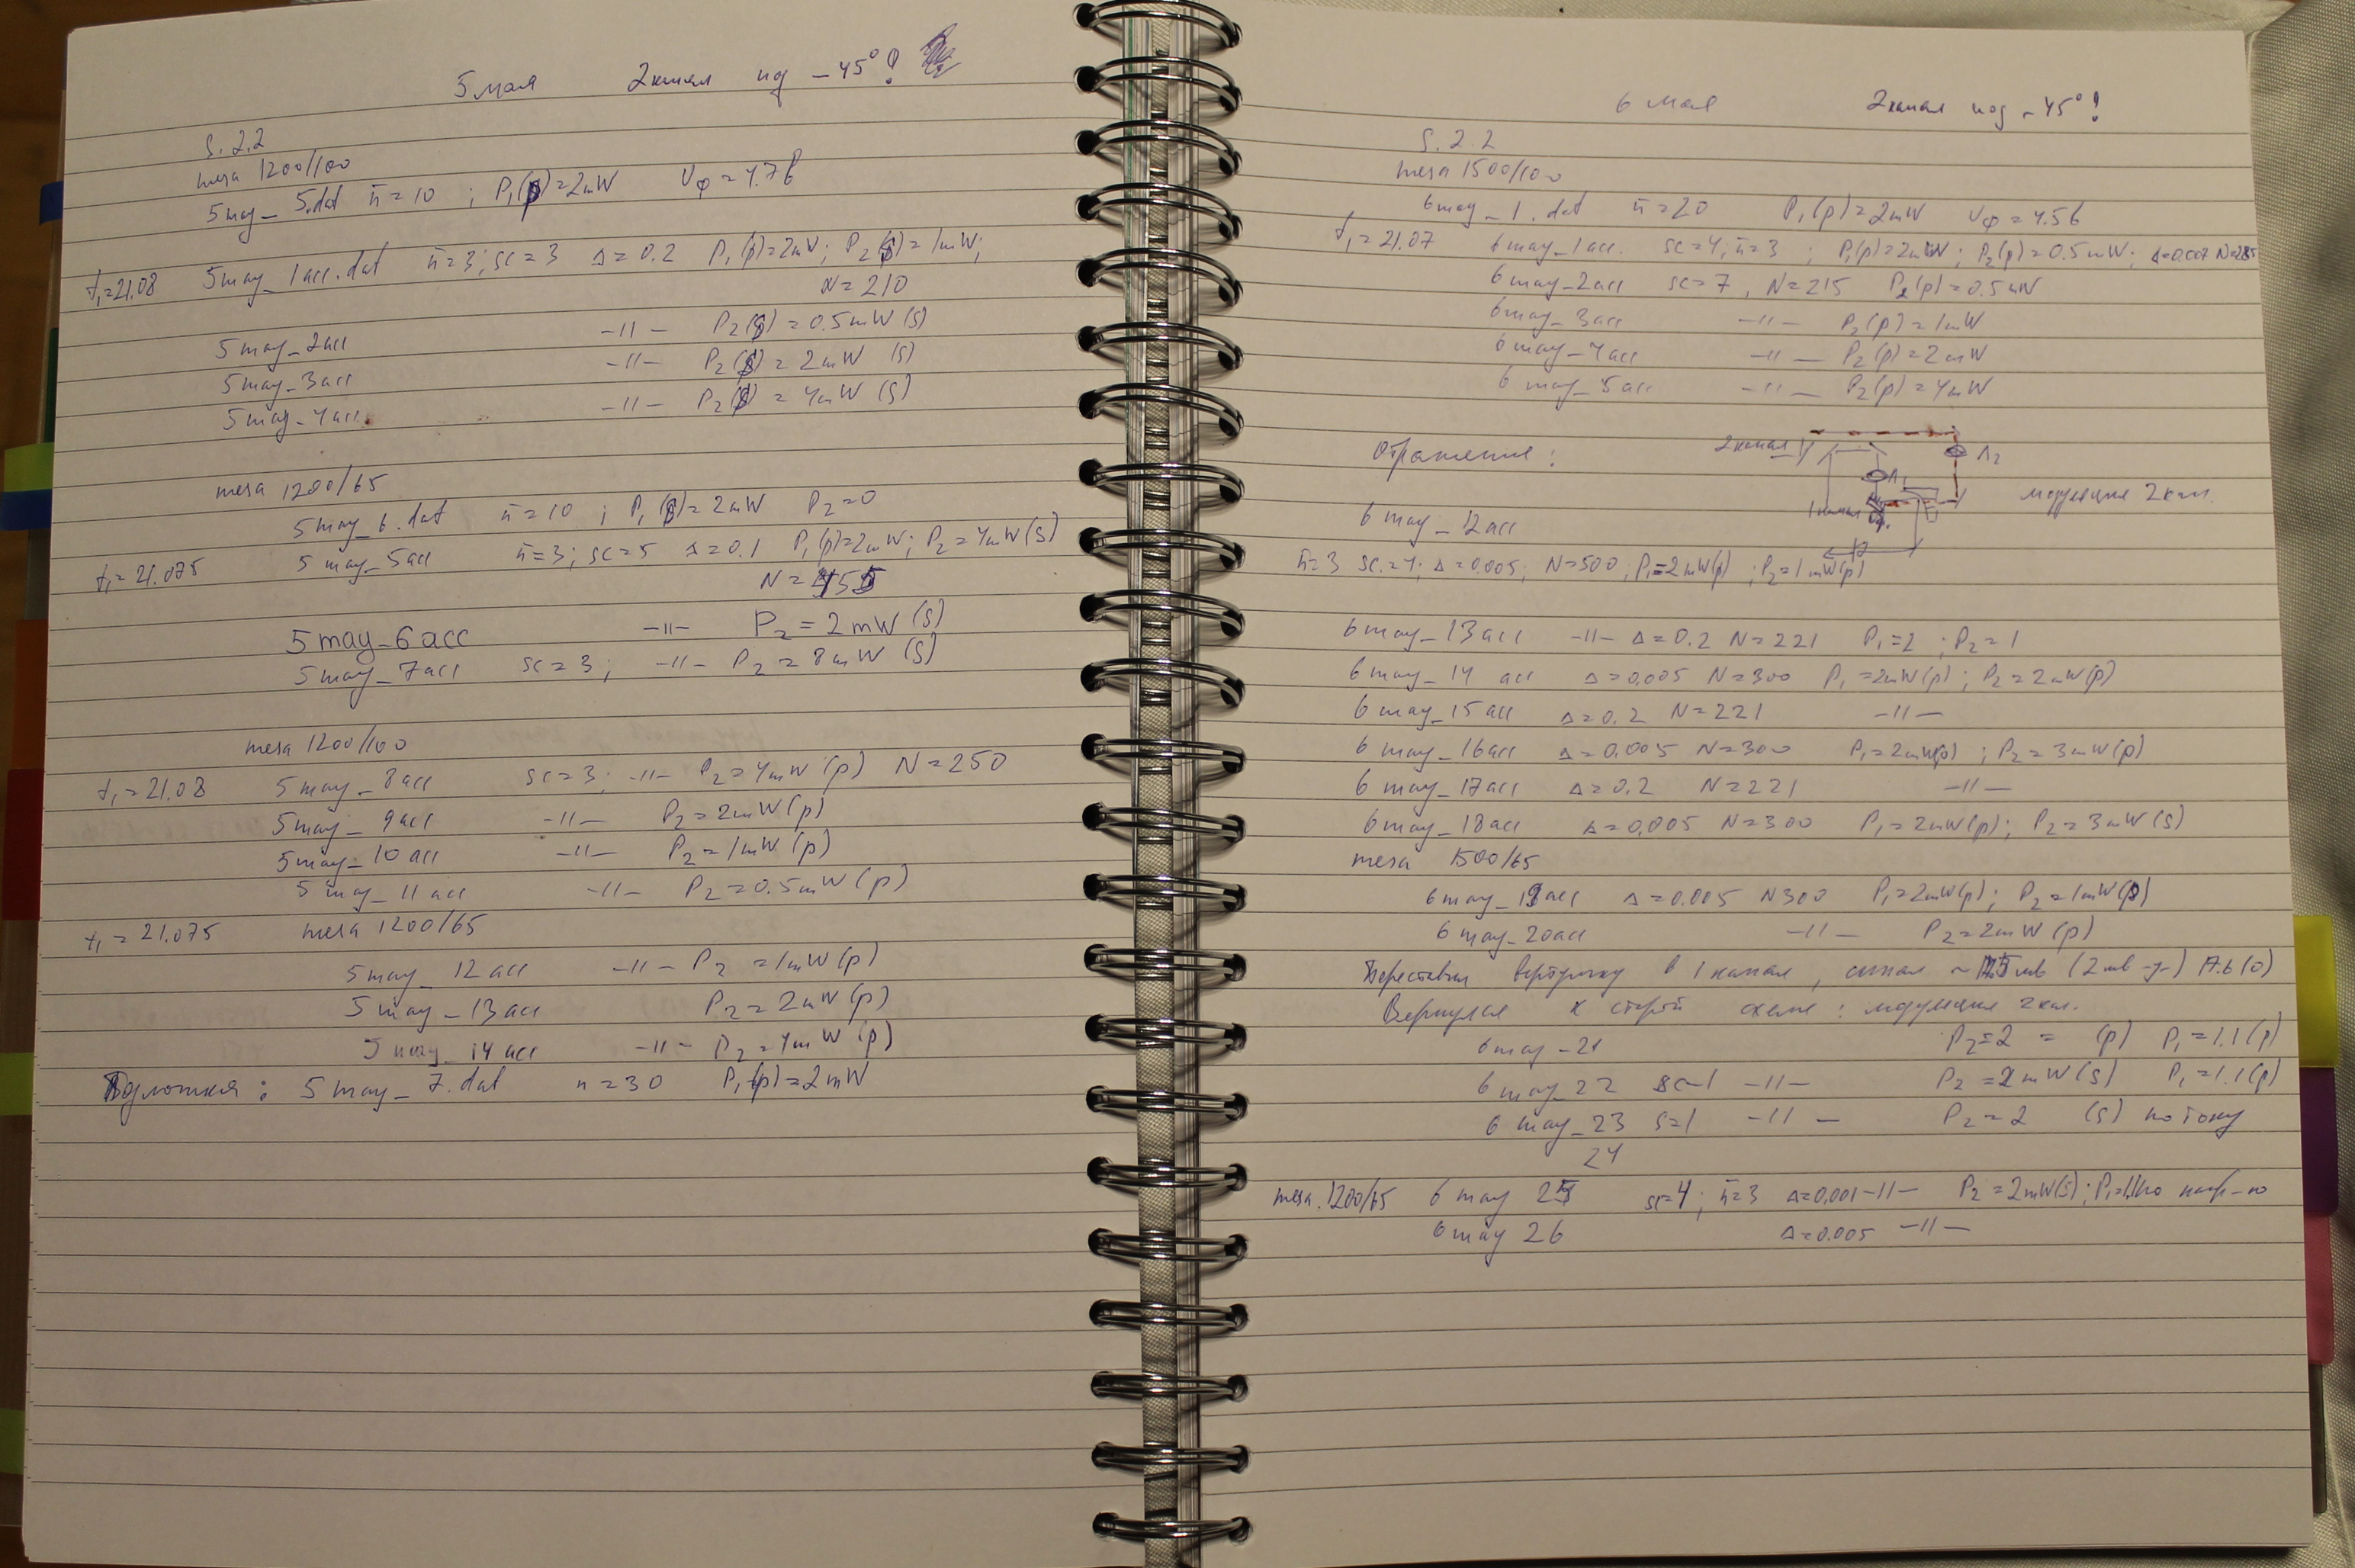 5 мая 2 канал под -45°!
S. 2.2
mesa 1200/100
5may_5.dat n̄=10 ; P₁(p)=2mW Uф=4.7В
t₁=21.08 5may_1acc.dat n̄=3; sc=3 Δ=0.2 P₁(p)=2mW; P₂(s)=1mW;
N=210
5may_2acc -11- P₂(s)=0.5mW (s)
5may_3acc -11- P₂(s)=2mW (s)
5may_4acc. -11- P₂(s)=4mW (s)
mesa 1200/65
5may_6.dat n̄=10 ; P₁(p)=2mW P₂=0
t₁=21.075 5may_5acc n̄=3; sc=5 Δ=0.1 P₁(p)=2mW; P₂=4mW(s)
N=455
5may_6acc -11- P₂=2mW (s)
5may_7acc sc=3; -11- P₂=8mW (s)
mesa 1200/100
t₁=21.08 5may_8acc sc=3; -11- P₂=4mW (p) N=250
5may_9acc -11- P₂=2mW(p)
5may_10acc -11- P₂=1mW (p)
5may_11acc -11- P₂=0.5mW(p)
t₁=21.075 mesa 1200/65
5may_12acc -11- P₂=1mW(p)
5may_13acc P₂=2mW(p)
5may_14acc -11- P₂=4mW(p)
Подложка: 5may_7.dat n=30 P₁(p)=2mW
6 мая 2 канал под -45°!
S. 2.2
mesa 1500/100
6may_1.dat n̄=20 P₁(p)=2mW Uф=4.5В
t₁=21.07 6may_1acc. sc=4; n̄=3 ; P₁(p)=2mW; P₂(p)=0.5mW; Δ=0.007 N=285
6may_2acc sc=7, N=215 P₂(p)=0.5mW
6may_3acc -11- P₂(p)=1mW
6may_4acc -11- P₂(p)=2mW
6may_5acc -11- P₂(p)=4mW
Отражение: 2 канал Л₂
Л₁ модуляция 2 кан.
1 канал
6may_12acc
n̄=3 sc.=4; Δ=0.005; N=500; P₁=2mW(p) ; P₂=1mW(p)
6may_13acc -11- Δ=0.2 N=221 P₁=2 ; P₂=1
6may_14acc Δ=0.005 N=300 P₁=2mW(p); P₂=2mW(p)
6may_15acc Δ=0.2 N=221 -11-
6may_16acc Δ=0.005 N=300 P₁=2mW(p) ; P₂=3mW(p)
6may_17acc Δ=0.2 N=221 -11-
6may_18acc Δ=0.005 N=300 P₁=2mW(p); P₂=3mW(s)
mesa 1500/65
6may_19acc Δ=0.005 N300 P₁=2mW(p); P₂=1mW(p)
6may_20acc -11- P₂=2mW(p)
Переставил вертушку в 1 канал, сигнал
Вернулся к старой схеме: модуляция 2 кан.
6may_21 P₂=2 = (p) P₁=1.1(p)
6may_22 sc=1 -11- P₂=2mW(s) P₁=1.1(p)
6may_23 s=1 -11- P₂=2 (s) по току
24
mesa.1200/65 6may 25 sc=4; n̄=3 Δ=0.001 -11- P₂=2mW(s); P₁=1.1 по напр-ю
6may 26 Δ=0.005 -11-